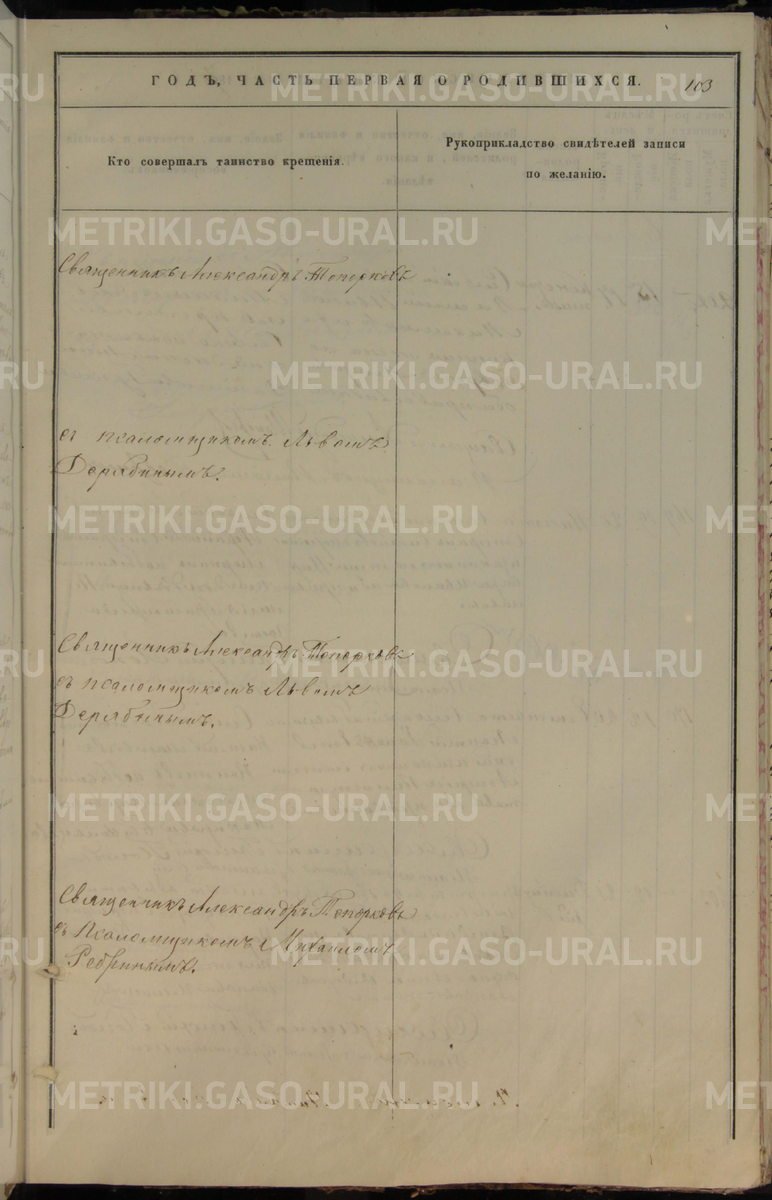 ГОДЪ, ЧАСТЬ ПЕРВАЯ О РОДИВШИХСЯ.
103
Кто совершалъ таинство крещенія.
Рукоприкладство свидѣтелей записи
по желанію.
Священникъ Александръ Топорковъ
съ псаломщикомъ Львомъ
Дерябинымъ.
Священникъ Александръ Топорковъ
съ псаломщикомъ Львомъ
Дерябинымъ.
Священникъ Александръ Топорковъ
съ Псаломщикомъ Михаиломъ
METRIKI.GASO-URAL.RU